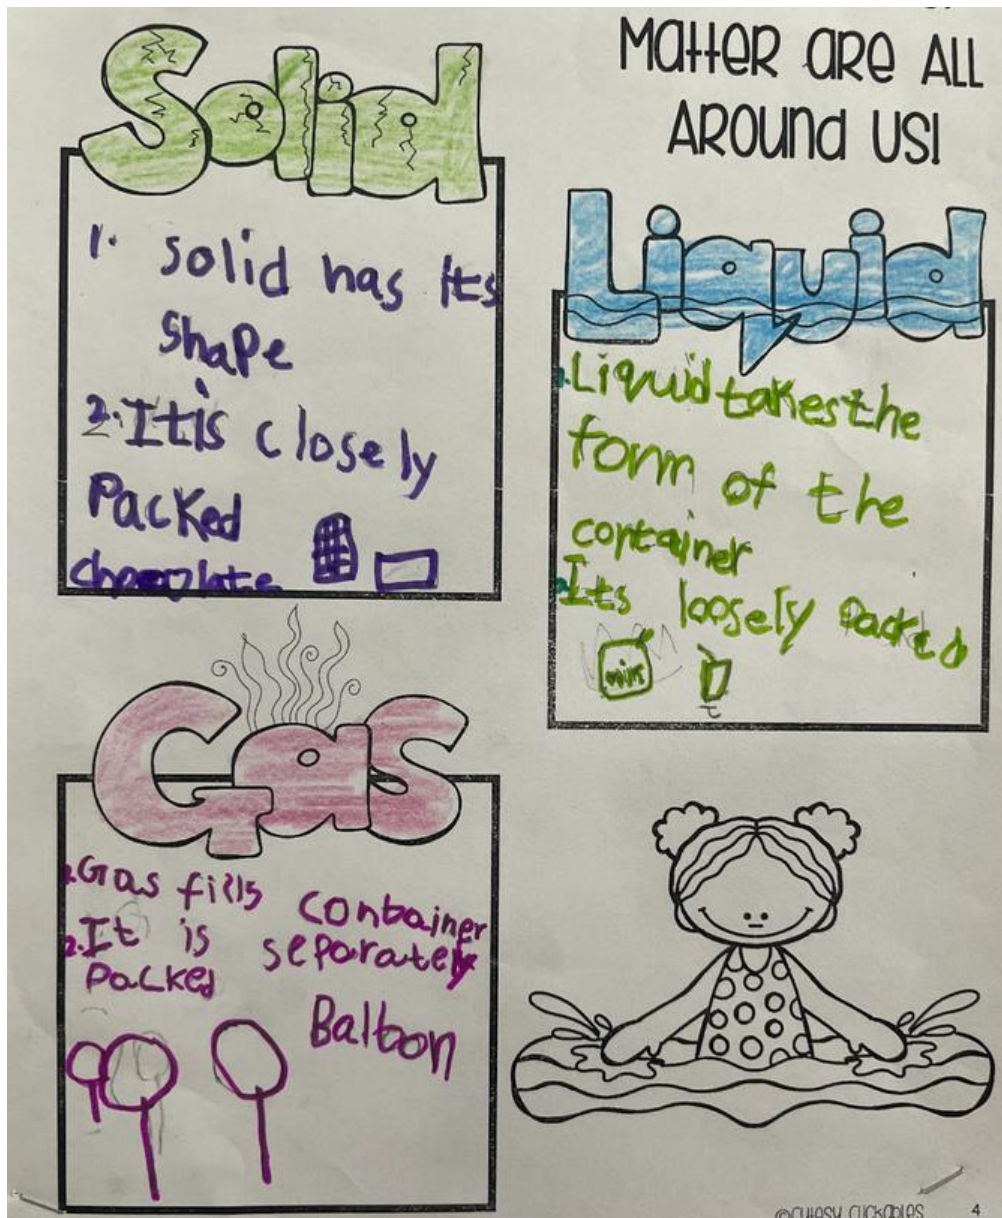 Matter are All
Around Us!
Solid
1. solid has its
shape
2. It is closely
Packed
Liquid
Liquid takes the
form of the
container
Its loosely Packed
milk
Gas
1. Gas fills container
2. It is separately
Packed
Balloon
©Cutesy Clickables 4